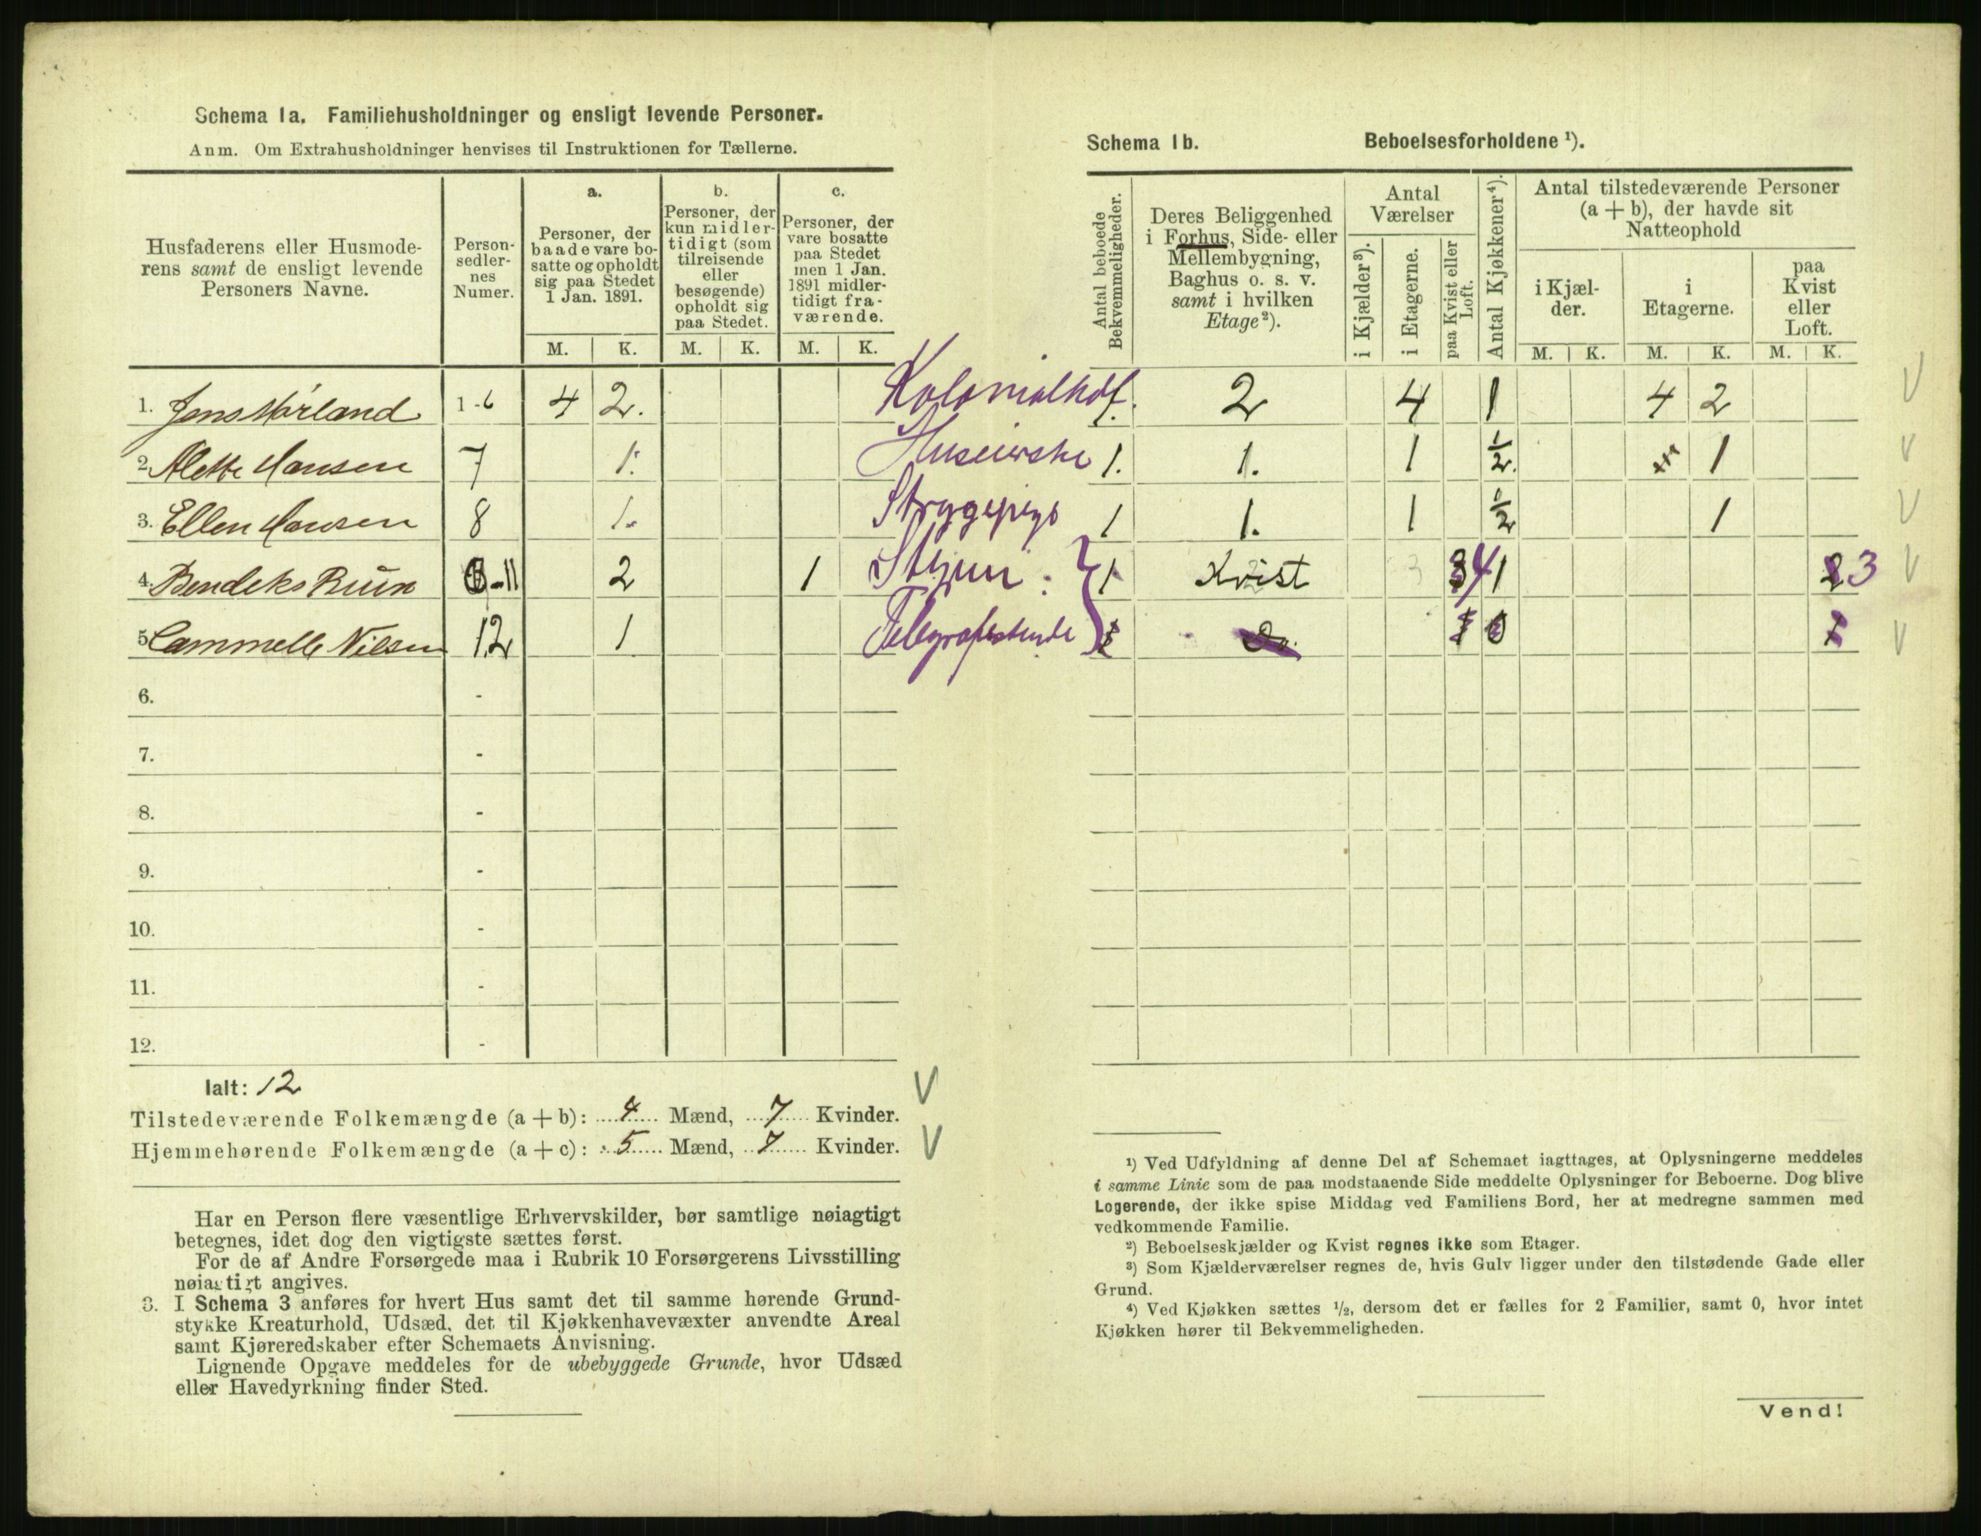 Schema 1a. Familiehusholdninger og ensligt levende Personer.
Anm. Om Extrahusholdninger henvises til Instruktionen for Tællerne.
Husfaderens eller Husmode-
rens samt de ensligt levende
Personers Navne.
Person-
sedler-
nes
Numer.
a.
Personer, der
baade vare bo-
satte og opholdt
sig paa Stedet
1 Jan. 1891.
b.
Personer, der
kun midler-
tidigt (som
tilreisende
eller
besøgende)
opholdt sig
paa Stedet.
c.
Personer, der
vare bosatte
paa Stedet
men 1 Jan.
1891 midler-
tidigt fra-
værende.
M. K. M. K. M. K.
1. Jens Mørland 1-6 4 2.
2. Alette Hansen 7 1.
3. Ellen Hansen 8 1.
4. Bendeks -11 2 1
5. Nilsen 12 1
6. -
7. -
8. -
9. -
10. -
11. -
12. -
Ialt: 12
Tilstedeværende Folkemængde (a + b): 4 Mænd, 7 Kvinder.
Hjemmehørende Folkemængde (a + c): 5 Mænd, 7 Kvinder.
Har en Person flere væsentlige Erhvervskilder, bør samtlige nøiagtigt
betegnes, idet dog den vigtigste sættes først.
For de af Andre Forsørgede maa i Rubrik 10 Forsørgerens Livsstilling
nøiagtigt angives.
3. I Schema 3 anføres for hvert Hus samt det til samme hørende Grund-
stykke Kreaturhold, Udsæd, det til Kjøkkenhavevæxter anvendte Areal
samt Kjøreredskaber efter Schemaets Anvisning.
Lignende Opgave meddeles for de ubebyggede Grunde, hvor Udsæd
eller Havedyrkning finder Sted.
Schema 1b. Beboelsesforholdene ¹).
Antal beboede
Bekvemmeligheder.
Deres Beliggenhed
i Forhus, Side- eller
Mellembygning,
Baghus o. s. v.
samt i hvilken
Etage ²).
Antal
Værelser
i Kjælder ³).
i Etagerne.
paa Kvist eller
Loft.
Antal Kjøkkener ⁴).
Antal tilstedeværende Personer
(a + b), der havde sit
Natteophold
i Kjæl-
der.
i
Etagerne.
paa
Kvist
eller
Loft.
M. K. M. K. M. K.
Kolonialhdl. 1. 2 4 1 4 2
1. 1. 1 ½. 1
Strygepige 1 1. 1 ½ 1
1 Kvist 4 1 3
Telegrafistinde
¹) Ved Udfyldning af denne Del af Schemaet iagttages, at Oplysningerne meddeles
i samme Linie som de paa modstaaende Side meddelte Oplysninger for Beboerne. Dog blive
Logerende, der ikke spise Middag ved Familiens Bord, her at medregne sammen med
vedkommende Familie.
²) Beboelseskjælder og Kvist regnes ikke som Etager.
³) Som Kjælderværelser regnes de, hvis Gulv ligger under den tilstødende Gade eller
Grund.
⁴) Ved Kjøkken sættes ½, dersom det er fælles for 2 Familier, samt 0, hvor intet
Kjøkken hører til Bekvemmeligheden.
Vend!